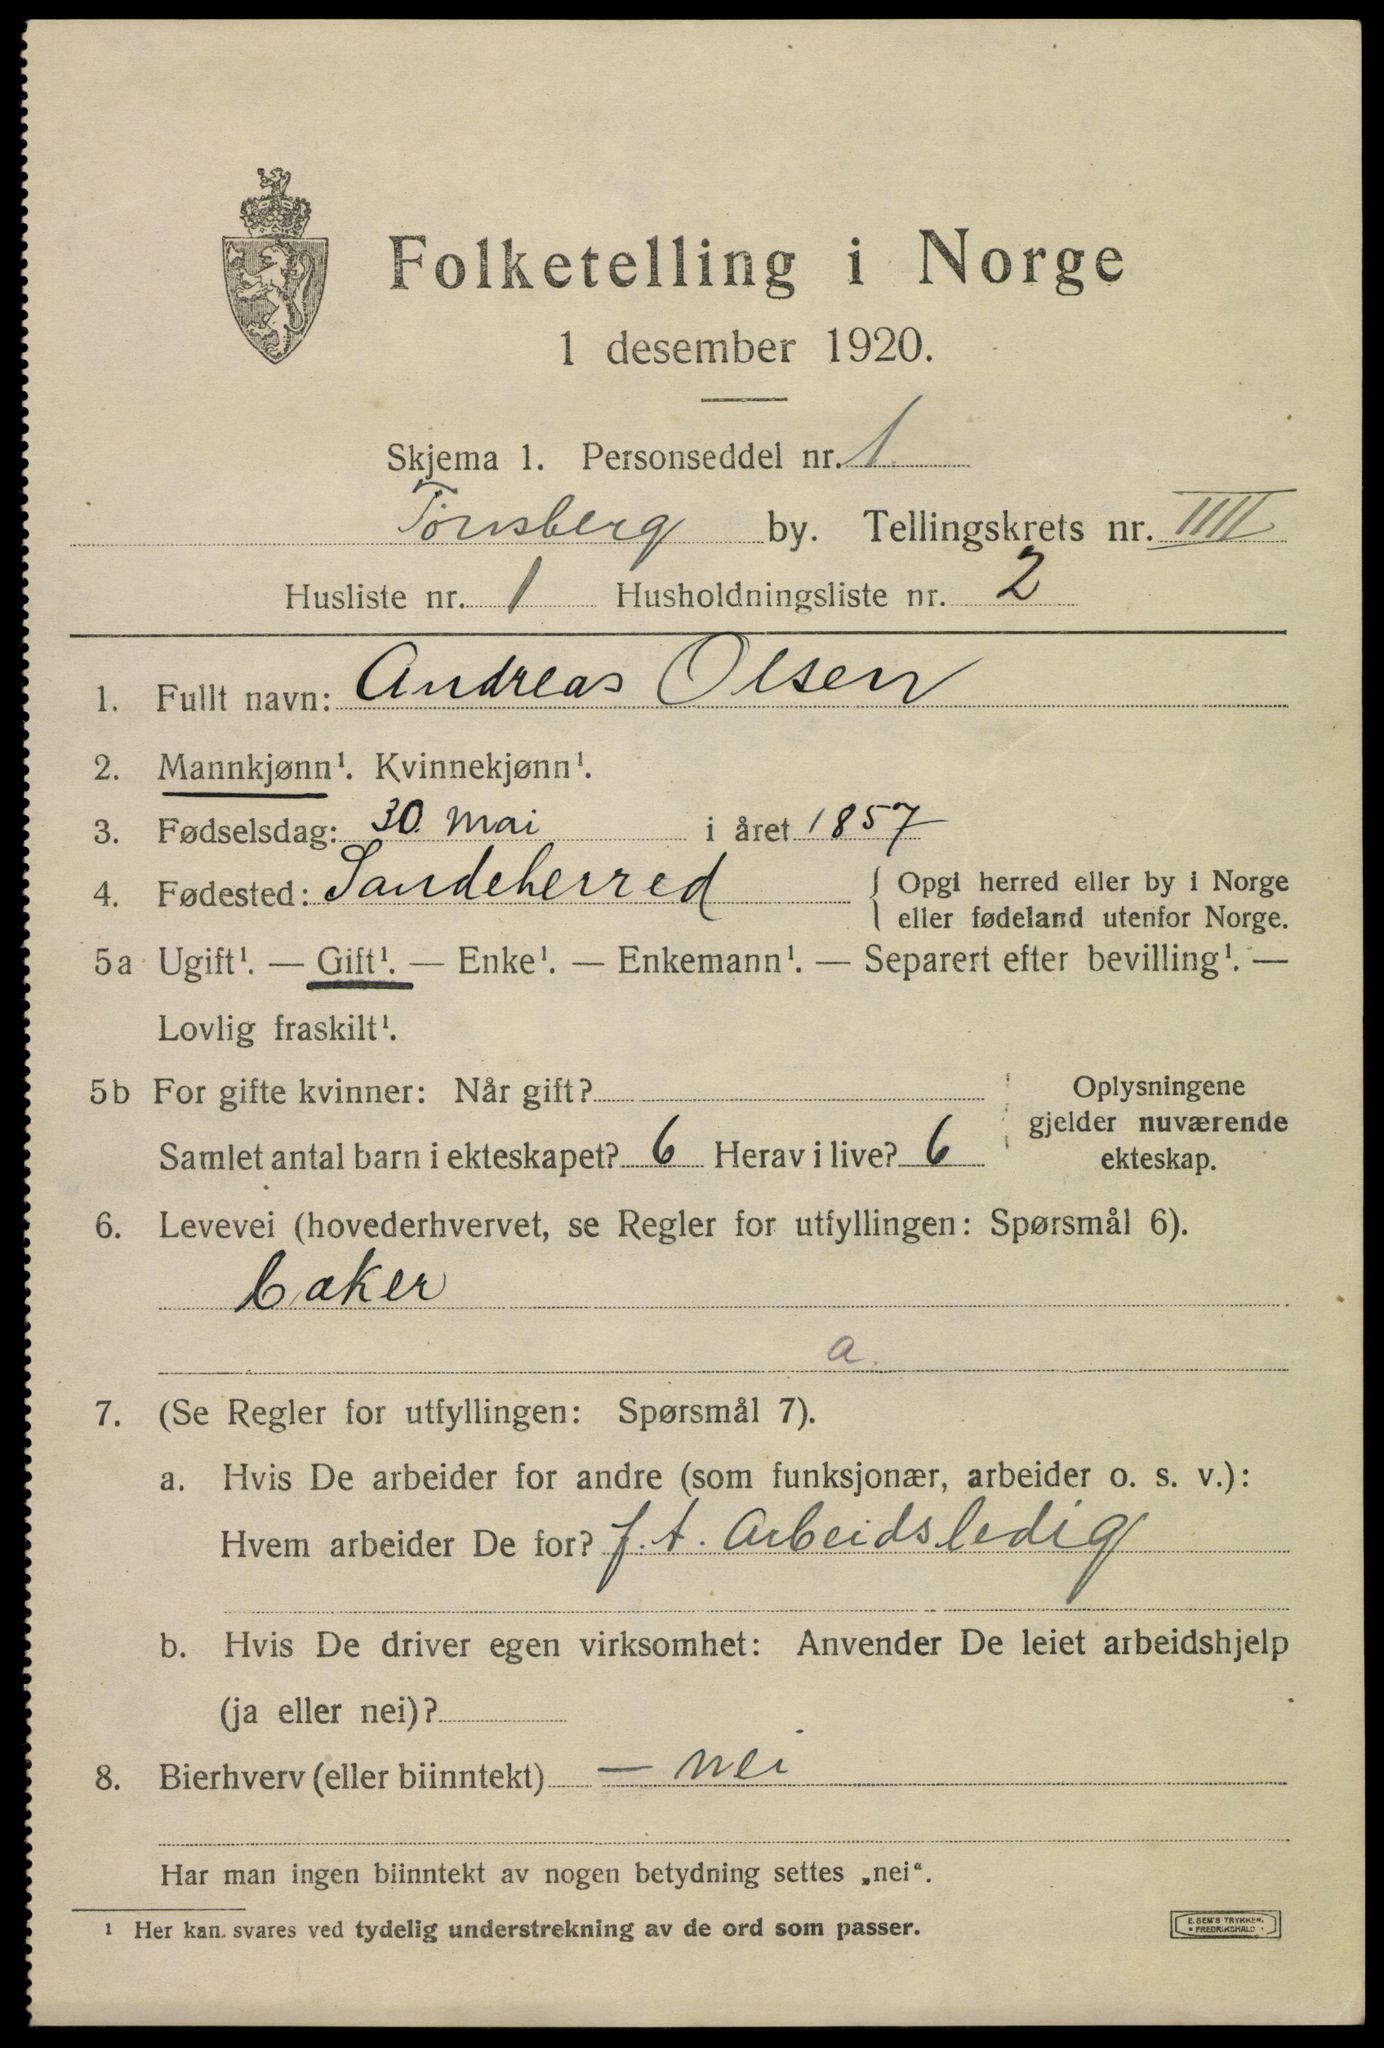 Folketelling i Norge
1 desember 1920.
Skjema 1. Personseddel nr. 1
Tønsberg by. Tellingskrets nr. IIII
Husliste nr. 1 Husholdningsliste nr. 2
1. Fullt navn: Andreas Olsen
2. Mannkjønn¹. Kvinnekjønn¹.
3. Fødselsdag: 30. mai i året 1857
4. Fødested: Sandeherred { Opgi herred eller by i Norge
eller fødeland utenfor Norge.
5a Ugift¹. — Gift¹. — Enke¹. — Enkemann¹. — Separert efter bevilling¹. —
Lovlig fraskilt¹.
5b For gifte kvinner: Når gift?
Samlet antal barn i ekteskapet? 6 Herav i live? 6
Oplysningene
gjelder nuværende
ekteskap.
6. Levevei (hovederhvervet, se Regler for utfyllingen: Spørsmål 6).
Caker
a.
7. (Se Regler for utfyllingen: Spørsmål 7).
a. Hvis De arbeider for andre (som funksjonær, arbeider o. s. v.):
Hvem arbeider De for? f. t. Arbeidsledig
b. Hvis De driver egen virksomhet: Anvender De leiet arbeidshjelp
(ja eller nei)?
8. Bierhverv (eller biinntekt) — nei
Har man ingen biinntekt av nogen betydning settes „nei“.
¹ Her kan svares ved tydelig understrekning av de ord som passer.
E. SEM'S TRYKKERI
• FREDRIKSHALD •